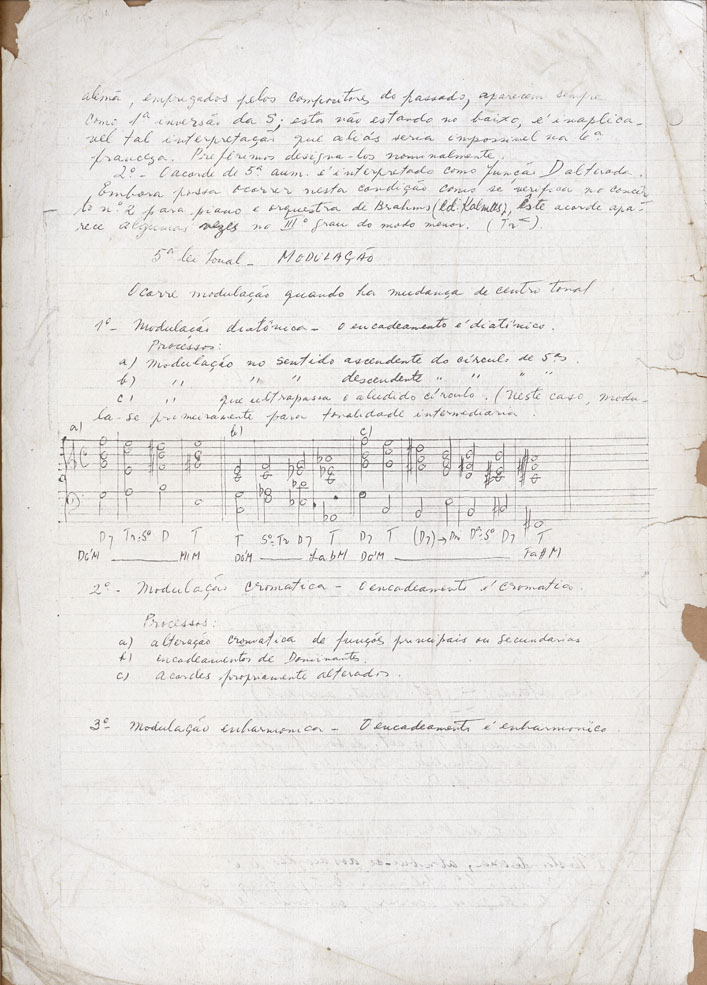 alemã, empregados pelos compositores do passado, aparecem sempre
como 1ª inversão da S; esta não estando no baixo, é inaplica-
vel tal interpretação que aliás seria impossivel na 6ª
francesa. Preferimos designa-los nominalmente.
2º - O acorde de 5ª aum. é interpretado como função D alterada.
Embora possa ocorrer nesta condição como se verifica no concêr-
to nº 2 para piano e orquestra de Brahms (Ed. Kalmus), êste acorde apa-
rece algumas vezes no IIIº grau do modo menor. (Tr<)
5ª lei tonal - MODULAÇÃO
Ocorre modulação quando ha mudança de centro tonal
1º - Modulação diatônica - O encadeamento é diatônico.
Processos:
a) Modulação no sentido ascendente do círculo de 5ªs.
b) " " " descendente " " " "
c) " que ultrapassa o aludido círculo. (Neste caso, modu-
la-se primeiramente para tonalidade intermediaria.
a) b) c)
D7 Tr:Sº D T T Sº:Tr D7 T D7 T (D7)→ Dº:Sº D7 T
DóM MiM DóM LabM DóM Fa#M
2º - Modulação cromatica - O encadeamento é cromatico.
Processos:
a) alteração cromatica de funções principais ou secundarias
b) encadeamentos de Dominantes.
c) Acordes propriamente alterados.
3º - Modulação enharmonica - O encadeamento é enharmonico.